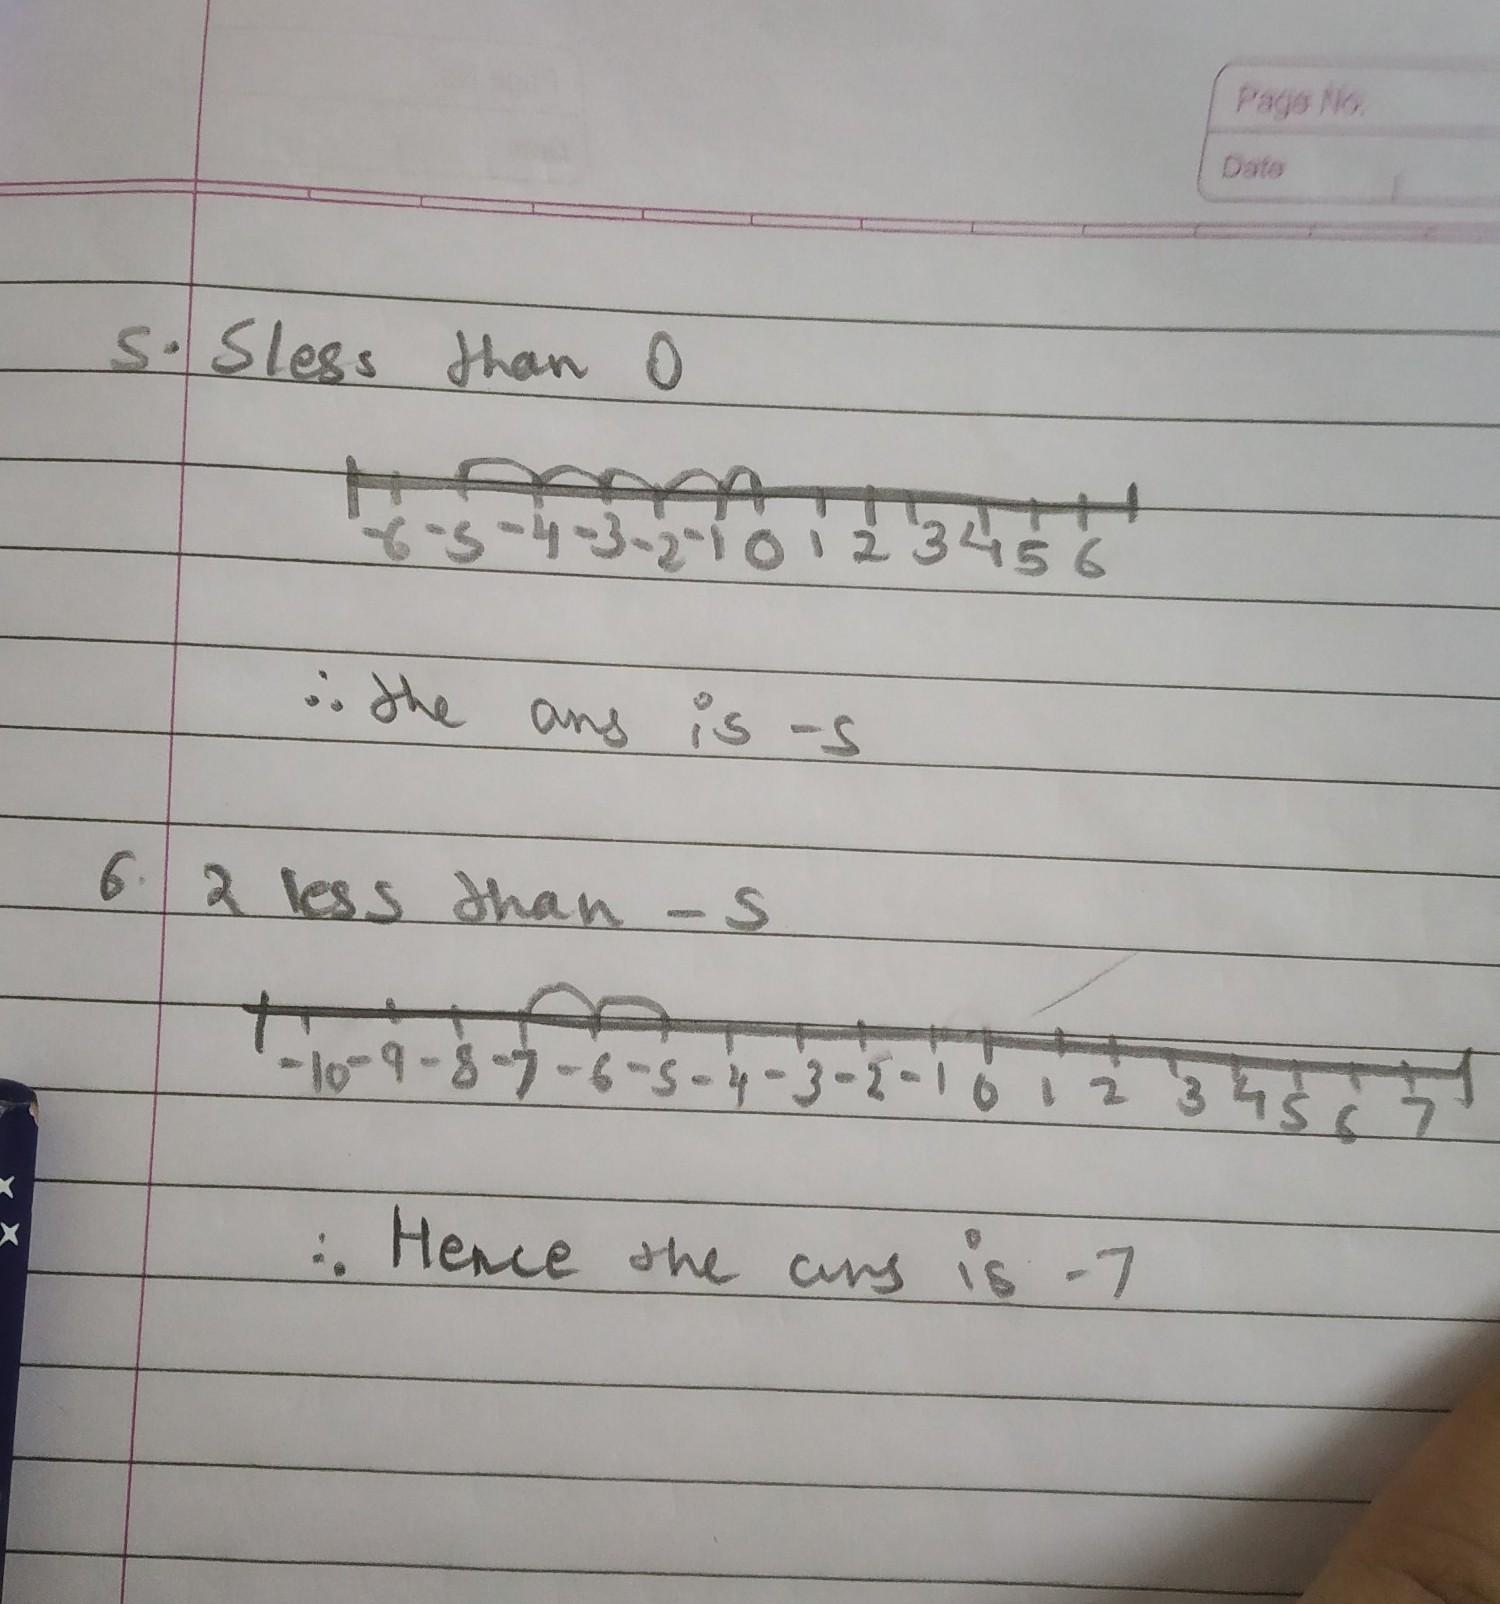 Page No.
Date
5. 5 less than 0
-6 -5 -4 -3 -2 -1 0 1 2 3 4 5 6
∴ the ans is -5
6. 2 less than -5
-10 -9 -8 -7 -6 -5 -4 -3 -2 -1 0 1 2 3 4 5 6 7
∴ Hence the ans is -7